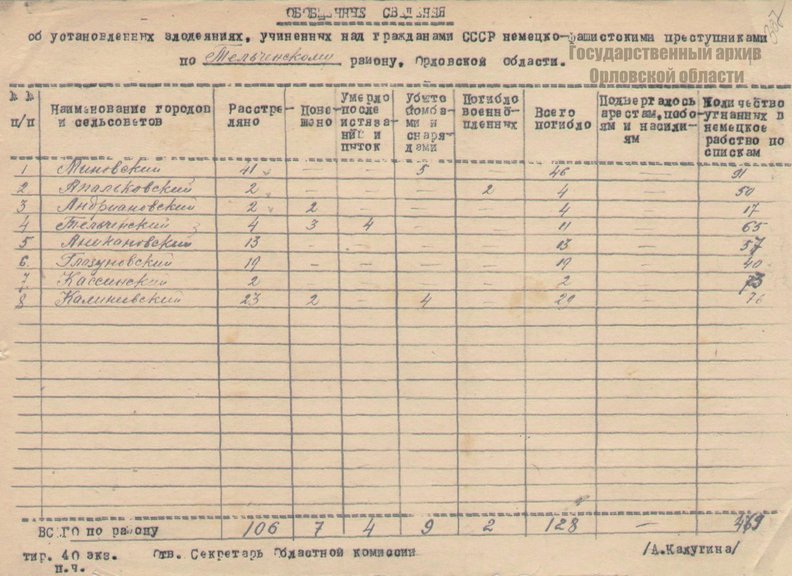 ОБОБЩЕННЫЕ СВЕДЕНИЯ
об установленных злодеяниях, учиненных над гражданами СССР немецко-фашистскими преступниками
по Тельченскому району, Орловской области.
Государственный архив
Орловской области
№ № п/п Наименование городов и сельсоветов Расстре-ляно Пове-шено Умерло после истяза-ний и пыток Убито бомба-ми и снаря-дами Погибло военно-пленных Всего погибло Подвергалось арестам, побо-ям и насили-ям Количество угнанных в немецкое рабство по спискам
1 Миновский 41 — — 5 — 46 — 91
2 Апальковский 2 — — — 2 4 — 50
3 Андриановский 2 2 — — — 4 — 17
4 Тельченский 4 3 4 — — 11 — 65
5 Аникановский 13 — — — — 13 — 57
6 Глазуновский 19 — — — — 19 — 40
7 2 — — — — 2 — 73
8 Калиневский 23 2 — 4 — 29 — 76
ВСЕГО по району 106 7 4 9 2 128 — 469
тир. 40 экз. отв. Секретарь Областной комиссии /А.Калугина/
п.ч.